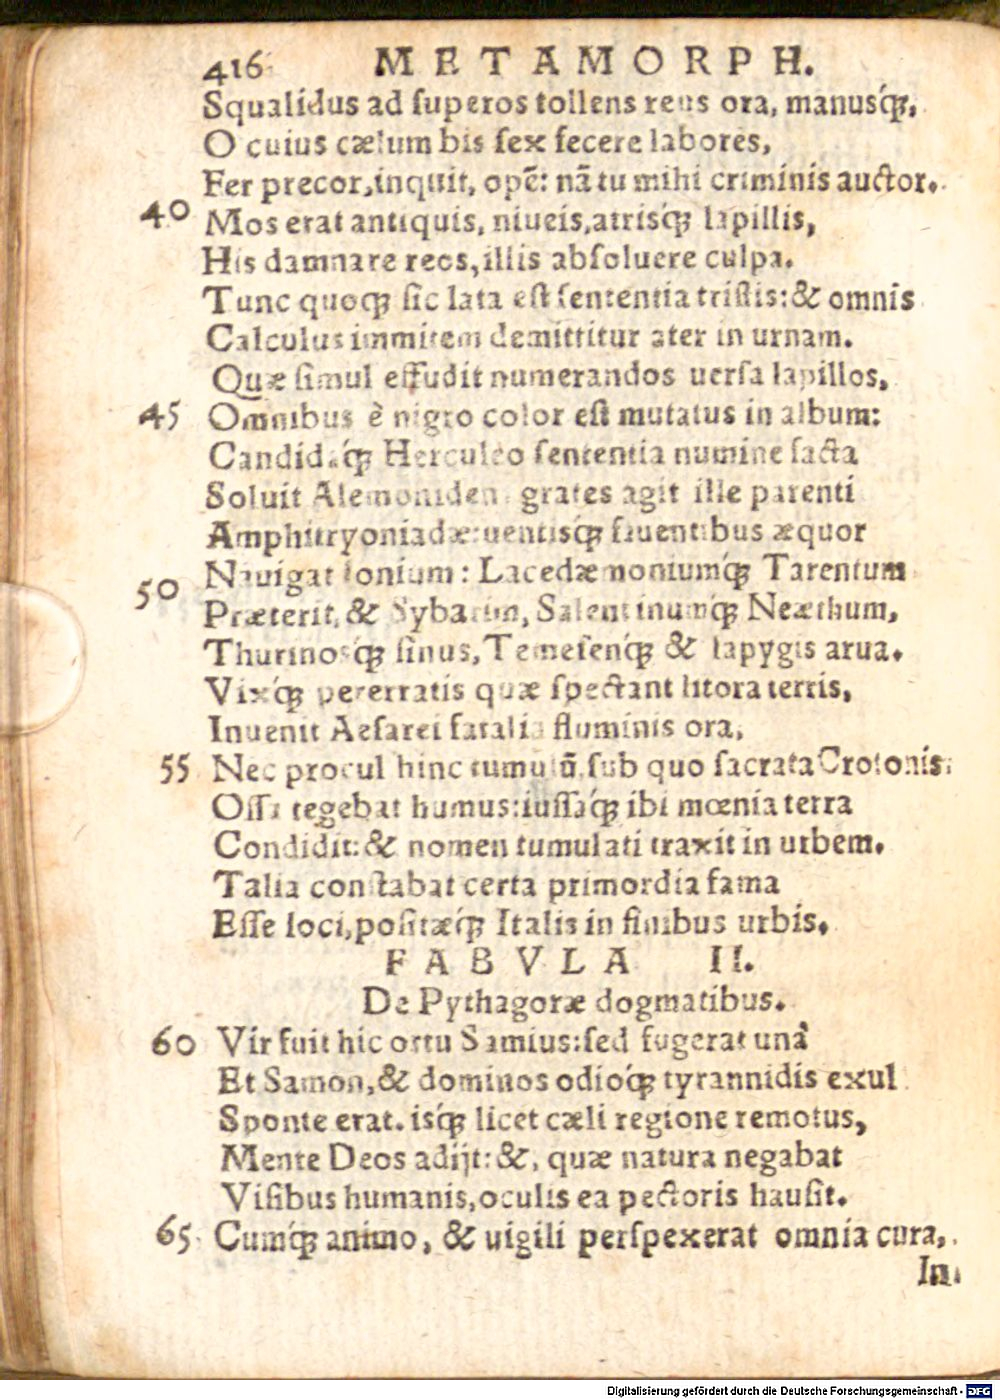 416 METAMORPH.
Squalidus ad superos tollens reus ora, manusq́;,
O cuius cælum bis sex fecere labores,
Fer precor, inquit, opẽ: nã tu mihi criminis auctor.
40 Mos erat antiquis, niueis, atrisq́; lapillis,
His damnare reos, illis absoluere culpa.
Tunc quoq; sic lata est sententia tristis: & omnis
Calculus immitem demittitur ater in urnam.
Quæ simul effudit numerandos uersa lapillos,
45 Omnibus è nigro color est mutatus in album:
Candidaq́; Herculeo sententia numine facta
Soluit Alemoniden, grates agit ille parenti
Amphitryoniadæ: uentisq; fauentibus æquor
Nauigat Ionium: Lacedæmoniumq́; Tarentum
50 Præterit, & Sybarin, Salentinumq́; Neæthum,
Thurinosq́; sinus, Temesenq́; & Iapygis arua.
Vixq́; pererratis quæ spectant litora terris,
Inuenit Aesarei fatalia fluminis ora,
55 Nec procul hinc tumulũ, sub quo sacrata Crotonis
Ossa tegebat humus: iussaq́; ibi mœnia terra
Condidit: & nomen tumulati traxit in urbem.
Talia constabat certa primordia fama
Esse loci, positæq́; Italis in finibus urbis.
FABVLA II.
De Pythagoræ dogmatibus.
60 Vir fuit hic ortu Samius: sed fugerat unà
Et Samon, & dominos odioq́; tyrannidis exul
Sponte erat. isq́; licet cæli regione remotus,
Mente Deos adijt: &, quæ natura negabat
Visibus humanis, oculis ea pectoris hausit.
65 Cumq́; animo, & uigili perspexerat omnia cura,
In
Digitalisierung gefördert durch die Deutsche Forschungsgemeinschaft - DFG